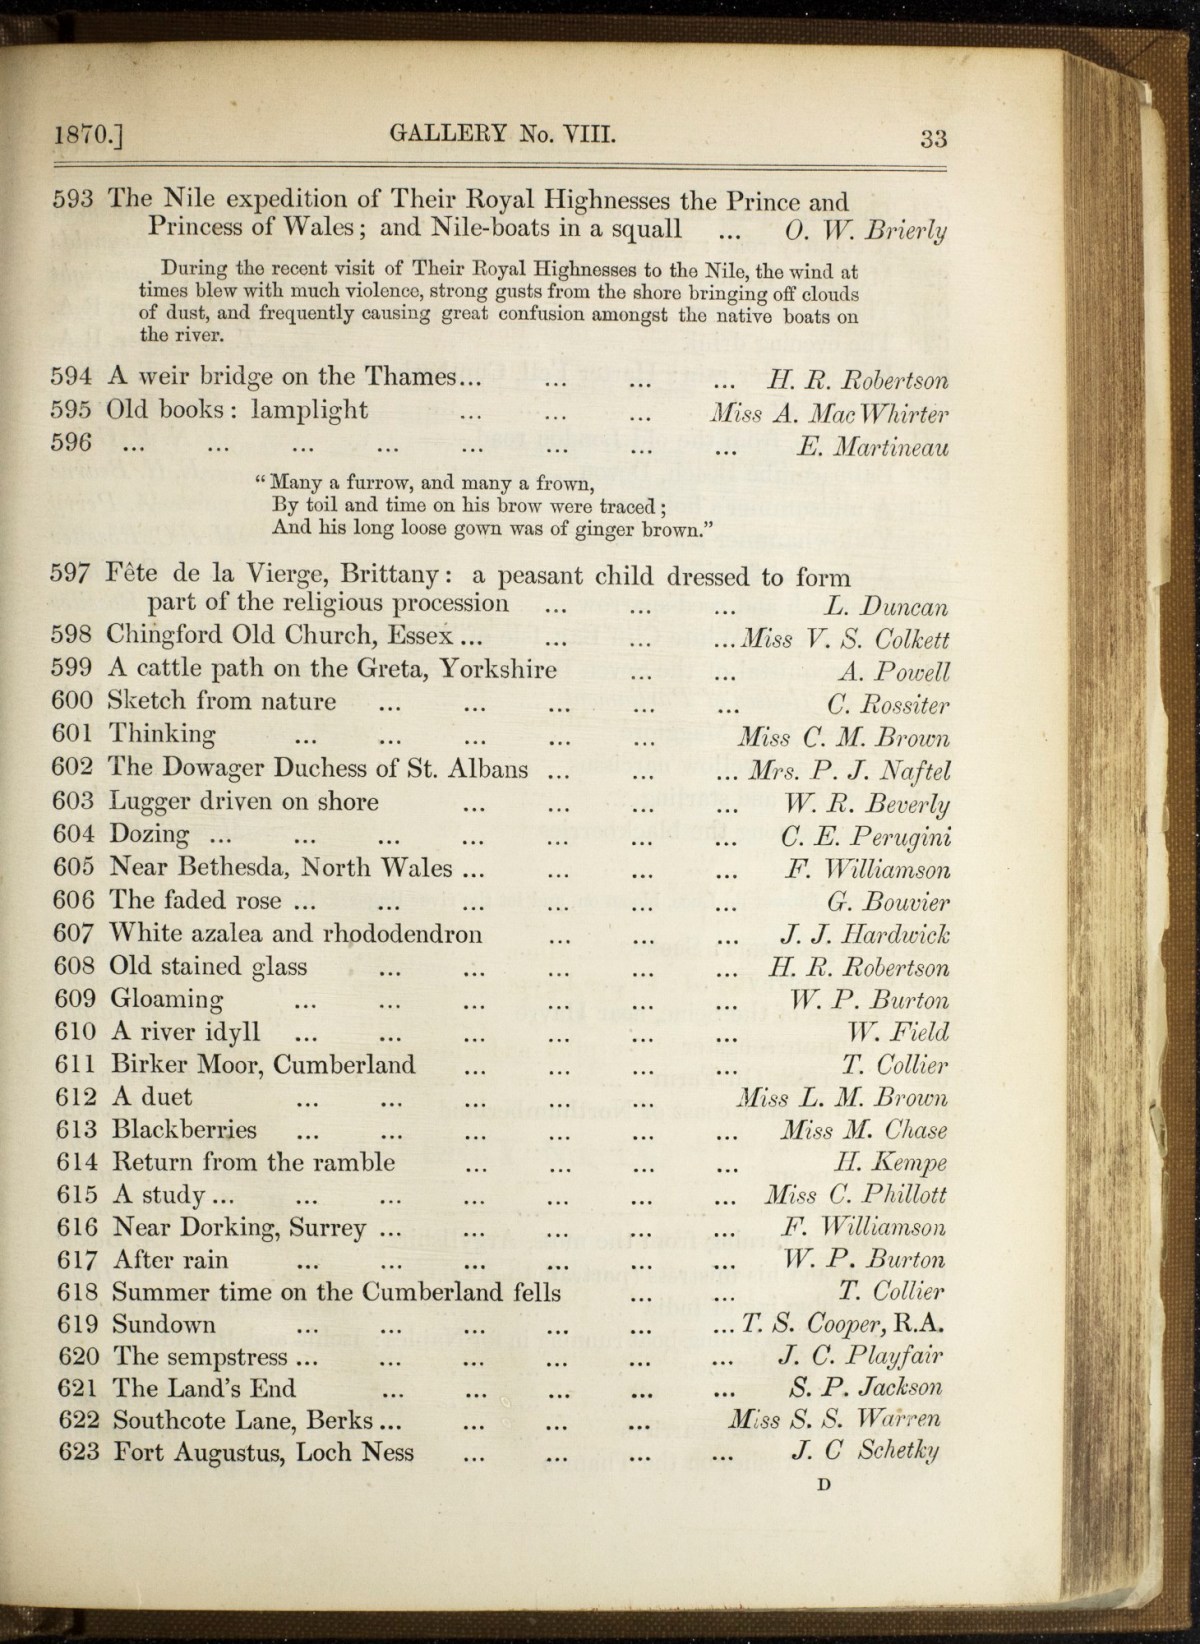 1870.] GALLERY No. VIII. 33
593 The Nile expedition of Their Royal Highnesses the Prince and
Princess of Wales; and Nile-boats in a squall ... O. W. Brierly
During the recent visit of Their Royal Highnesses to the Nile, the wind at
times blew with much violence, strong gusts from the shore bringing off clouds
of dust, and frequently causing great confusion amongst the native boats on
the river.
594 A weir bridge on the Thames... ... ... ... H. R. Robertson
595 Old books: lamplight ... ... ... Miss A. Mac Whirter
596 ... ... ... ... ... ... ... ... E. Martineau
“Many a furrow, and many a frown,
By toil and time on his brow were traced;
And his long loose gown was of ginger brown.”
597 Fête de la Vierge, Brittany: a peasant child dressed to form
part of the religious procession ... ... ... L. Duncan
598 Chingford Old Church, Essex... ... ... ... Miss V. S. Colkett
599 A cattle path on the Greta, Yorkshire ... ... A. Powell
600 Sketch from nature ... ... ... ... ... C. Rossiter
601 Thinking ... ... ... ... ... Miss C. M. Brown
602 The Dowager Duchess of St. Albans ... ... ... Mrs. P. J. Naftel
603 Lugger driven on shore ... ... ... ... W. R. Beverly
604 Dozing ... ... ... ... ... ... ... C. E. Perugini
605 Near Bethesda, North Wales ... ... ... ... F. Williamson
606 The faded rose ... ... ... ... ... ... G. Bouvier
607 White azalea and rhododendron ... ... ... J. J. Hardwick
608 Old stained glass ... ... ... ... ... H. R. Robertson
609 Gloaming ... ... ... ... ... ... W. P. Burton
610 A river idyll ... ... ... ... ... ... W. Field
611 Birker Moor, Cumberland ... ... ... ... T. Collier
612 A duet ... ... ... ... ... Miss L. M. Brown
613 Blackberries ... ... ... ... ... ... Miss M. Chase
614 Return from the ramble ... ... ... ... H. Kempe
615 A study... ... ... ... ... ... ... Miss C. Phillott
616 Near Dorking, Surrey ... ... ... ... ... F. Williamson
617 After rain ... ... ... ... ... ... W. P. Burton
618 Summer time on the Cumberland fells ... ... T. Collier
619 Sundown ... ... ... ... ... ... T. S. Cooper, R.A.
620 The sempstress ... ... ... ... ... ... J. C. Playfair
621 The Land's End ... ... ... ... ... S. P. Jackson
622 Southcote Lane, Berks... ... ... ... Miss S. S. Warren
623 Fort Augustus, Loch Ness ... ... ... ... J. C Schetky
D